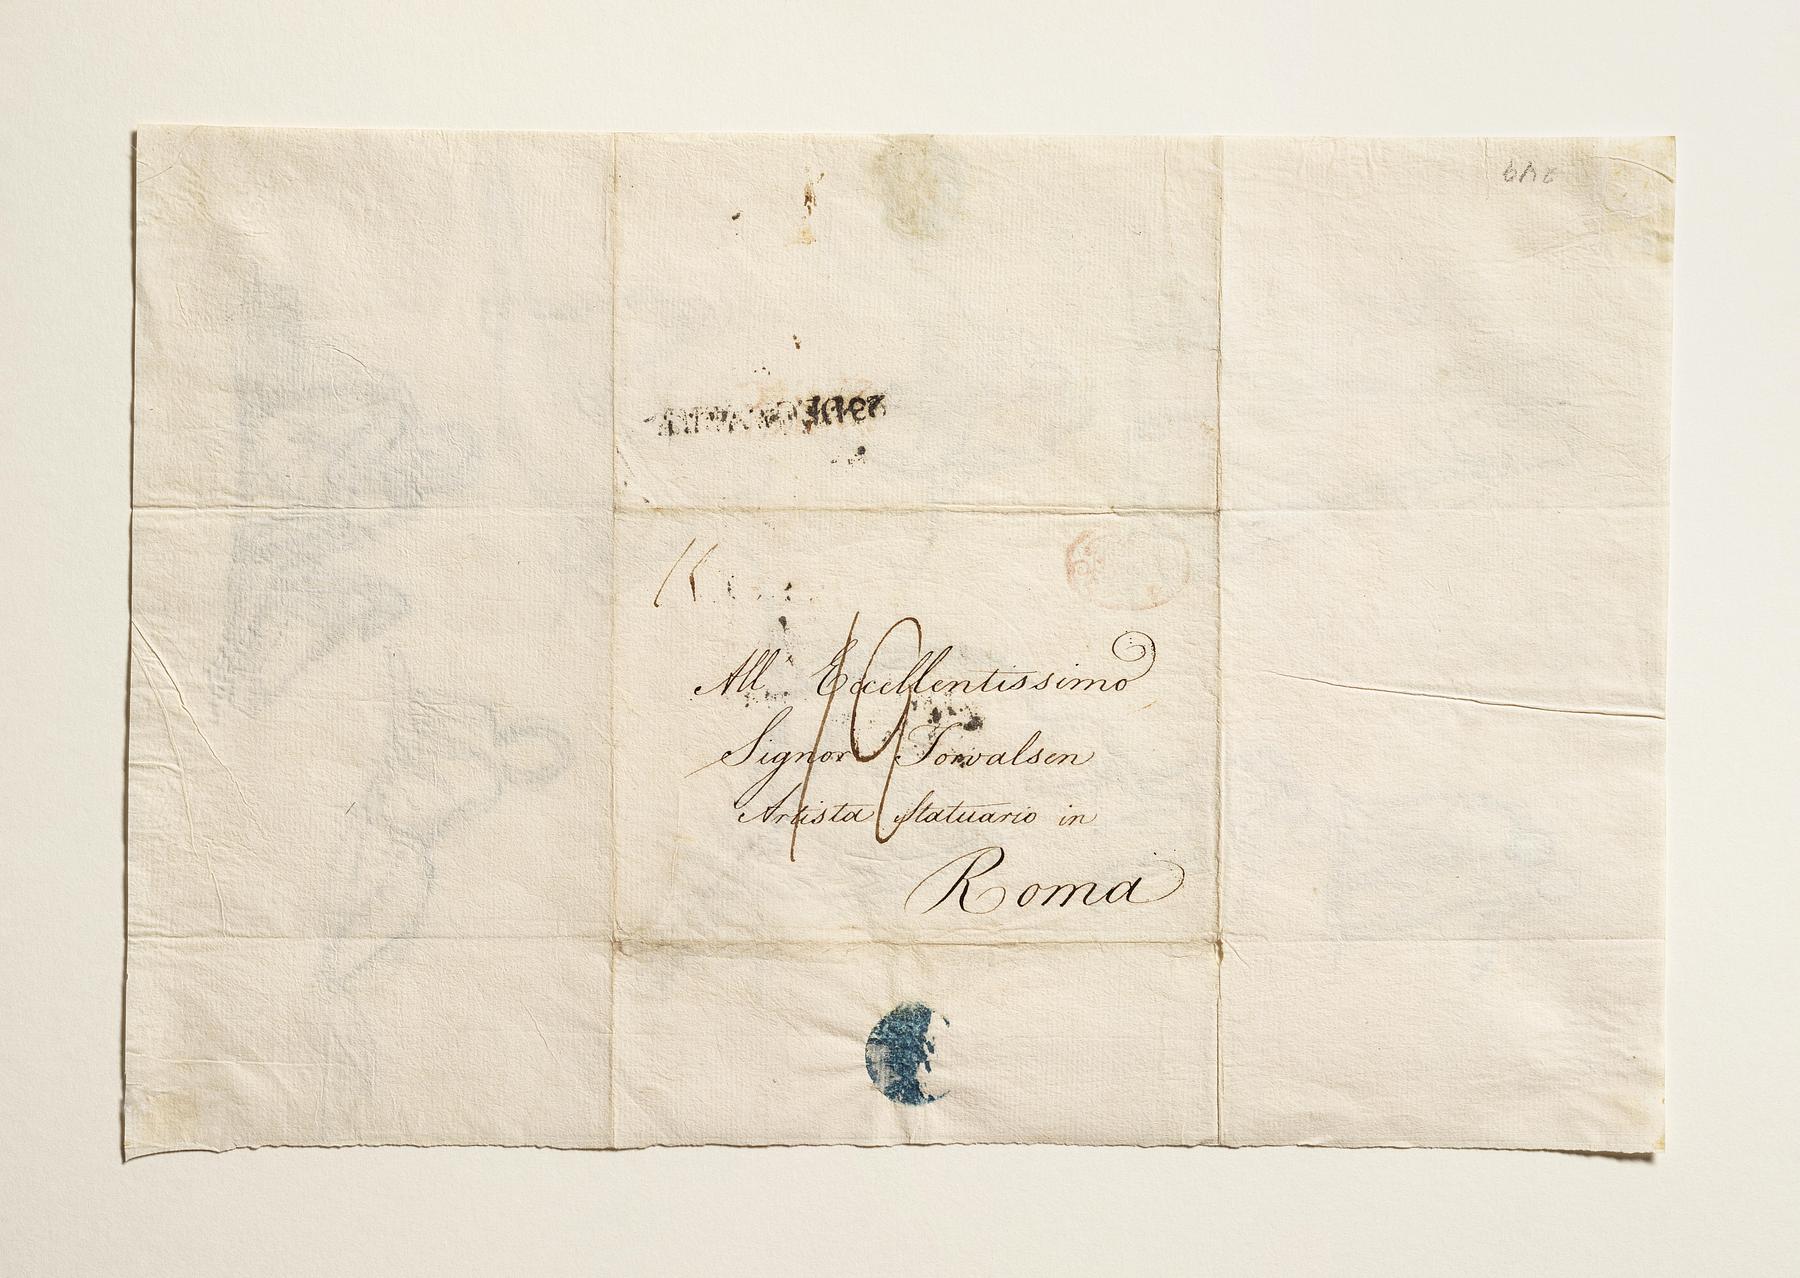 All' Eccellentissimo
Signor Torvalsen
Artista Statuario in
Roma